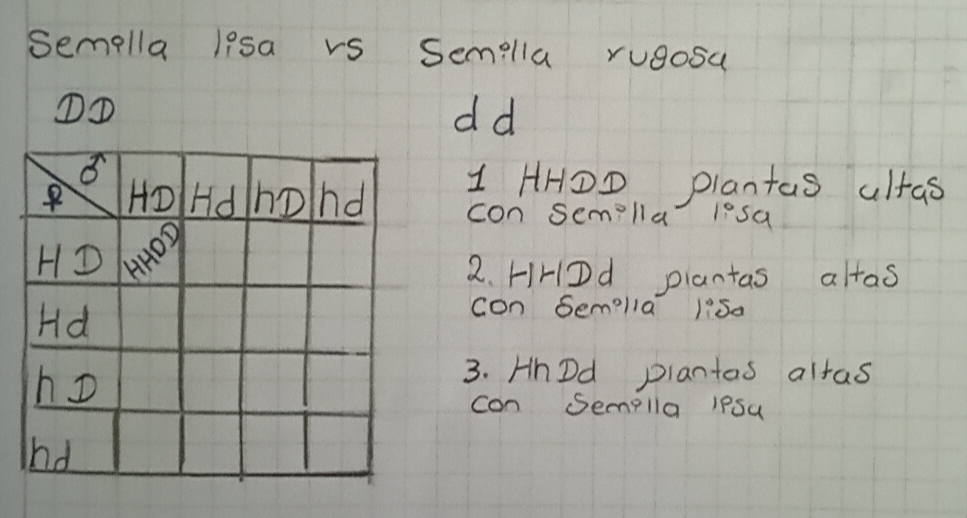 Semilla lisa vs Semilla rugosa
DD dd
♀ ♂ HD Hd hD hd
HD HHDD
Hd
hD
hd
1 HHDD plantas altas
con semilla lisa
2. HHDd plantas altas
con semilla lisa
3. HhDd plantas altas
con semilla lisa